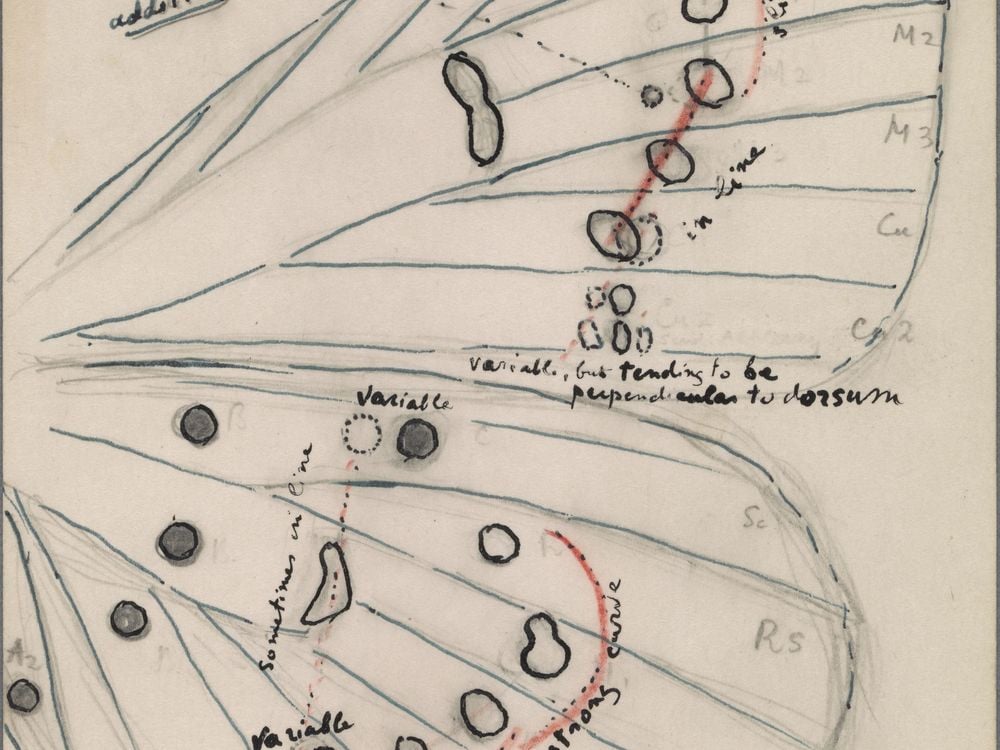 M2
M2
M3
in line
Cu
Cu2
variable, but tending to be
perpendicular to dorsum
variable
B
C
Sometimes in line
Sc
Rs
A2
strong curve
variable